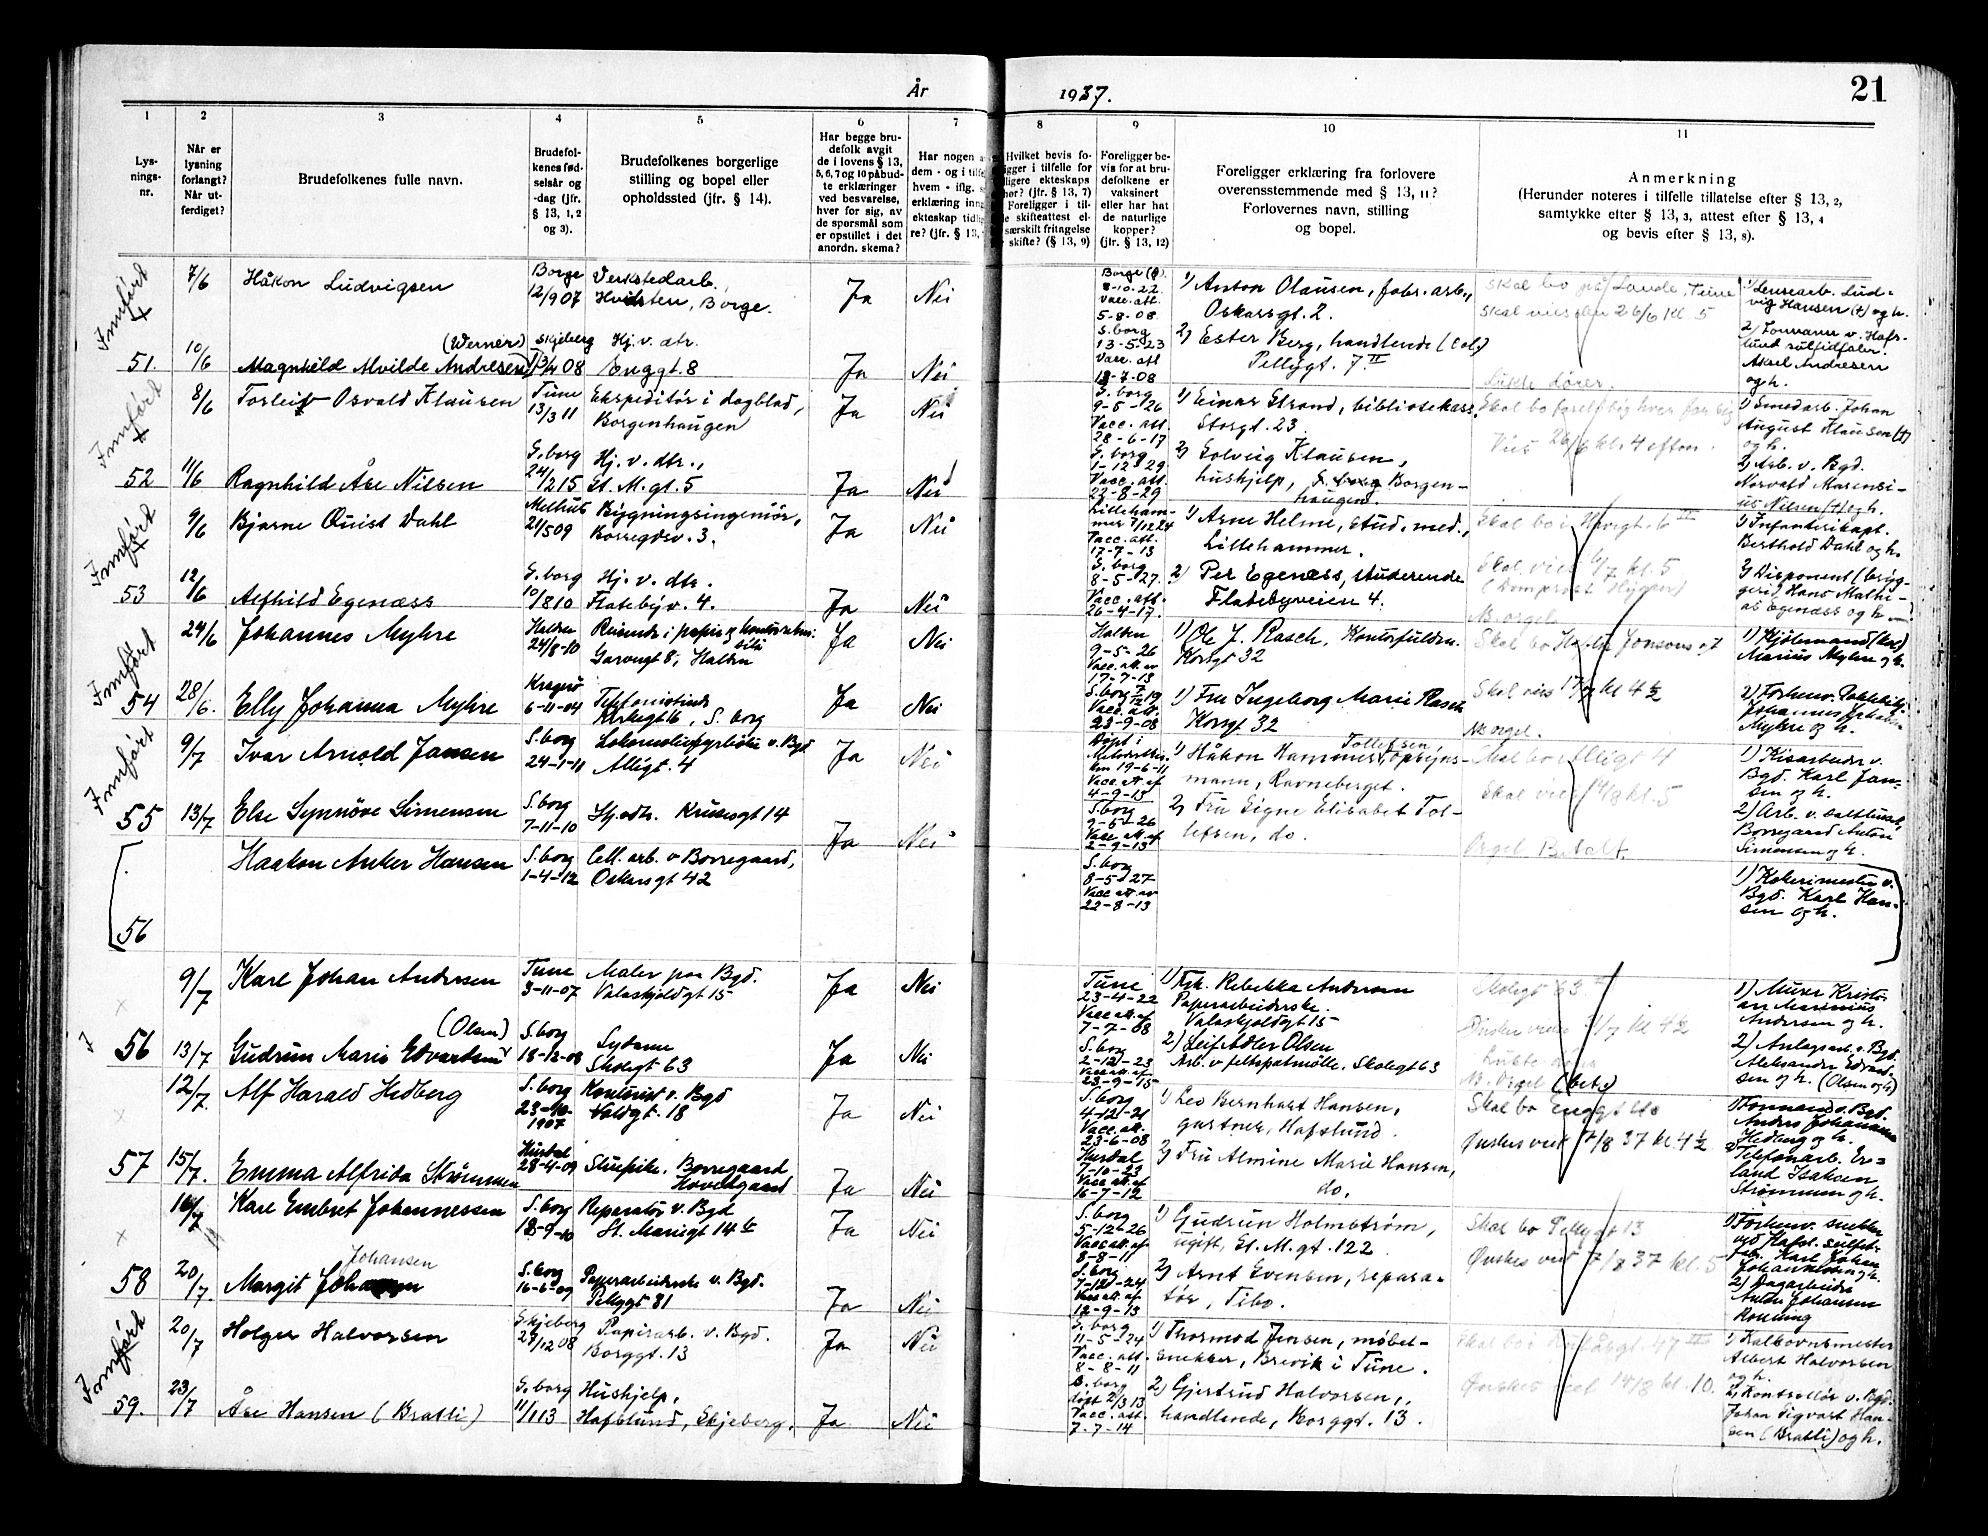 År 1937. 21
1 2 3 4 5 6 7 8 9 10 11
Lys-
nings-
nr.
Når er
lysning
forlangt?
Når ut-
ferdiget?
Brudefolkenes fulle navn.
Brudefol-
kenes fød-
selsår og
-dag (jfr.
§ 13, 1, 2
og 3).
Brudefolkenes borgerlige
stilling og bopel eller
opholdssted (jfr. § 14).
Har begge bru-
defolk avgit
de i lovens § 13,
5, 6, 7 og 10 påbud-
te erklæringer
ved besvarelse,
hver for sig, av
de spørsmål som
er opstillet i det
anordn. skema?
Har nogen a
dem - og i tilf
hvem - iflg.
erklæring inn
ekteskap tidl
re? (jfr. § 13,
Hvilket bevis fo-
ligger i tilfelle for
ligere ekteskaps
hør? (jfr. § 13, 7)
Foreligger i til-
le skifteattest el-
særskilt fritagelse
skifte? (§ 13, 9)
Foreligger be-
vis for at bru-
defolkene er
vaksinert
eller har hat
de naturlige
kopper?
(jfr. § 13, 12)
Foreligger erklæring fra forlovere
overensstemmende med § 13, 11?
Forlovernes navn, stilling
og bopel.
Anmerkning
(Herunder noteres i tilfelle tillatelse efter § 13, 2,
samtykke efter § 13, 3, attest efter § 13, 4
og bevis efter § 13, 8).
Innført
7/6
Håkon Ludvigsen
Borge
12/9 07
Verkstedarb.,
Hvidsten, Borge.
Ja
Nei
Borge
8-10-22
Vacc. att.
5-8-08
1) Anton Olausen, fabr. arb.,
Oskarsgt. 2.
Skal bo på Lande, Tune
Skal vies den 26/6 kl 5
vig Hansen (†) og h.
51.
10/6
(Werner)
Magnhild Alvilde Andresen
Skjeberg
08
Hj. v. dtr.
Enggt. 8
Ja
Nei
S.borg
13-5-23
Vacc. att
7-08
2) Ester Berg, handlende
Pellygt. 7 II
Lukte dører.
2) Formann v. Hafs-
lund sulfidfabr.
Aksel Andresen
og h.
Innført
8/6
Torleif Osvald Klausen
Tune
13/3 11
Ekspeditør i dagblad,
Borgenhaugen
Ja
Nei
S. borg
9-5-26
Vacc. att.
28-6-17
1) Einar Strand, bibliotekass.
Storgt. 23.
Skal bo
Vies 26/6 kl. 4 efterm.
1) Smedarb. Johan
August Klausen (†)
og h.
52
11/6
Ragnhild Åse Nilsen
S. borg
24/2 15
Hj. v. dtr.,
St. M. gt. 5
Ja
Nei
S. borg
1-12-29
Vacc. att.
23-8-29
2) Solveig Klausen,
hushjelp, Borgen-
haugen.
2) Arb. v. Bgd.
Norvald Marensi-
us Nilsen (†) og h.
Innført
9/6
Bjarne Quist Dahl
Melhus
21/5 09
Bygningsingeniør,
Borregdsv. 3.
Ja
Nei
Lilleham-
mer 7/12 24
Vacc. att.
17-7-13
1) Arne Helme, stud. med.,
Lillehammer.
Skal bo i
1) Infanterikapt.
Berthold Dahl og h.
53
12/6
Alfhild Egenæss
S. borg
10/8 10
Hj. v. dtr.
Flatebyv. 4.
Ja
Nei
S. borg
8-5-27.
Vacc. att.
26-4-17.
2) Per Egenæss, studerende
Flatebyveien 4.
Skal vies 6/7 kl. 5
(Domprost Hygen)
2) Disponent (bryg-
geri) Hans Mathi-
as Egenæss og h.
Innført
24/6
Johannes Myhre
Halden
24/8-10
Reisende i papir og kontorrekvi-
Garvergt 8, Halden
Ja
Nei
Halden
9-5-26
Vacc. att. av
17-7-13
1) Ole J. Rasch, Kontorfuldm.
Korsgt 32
N. orgel
Skal bo Halden
1)
Marius Myhre og h.
54
28/6.
Elly Johanna Myhre
Kragerø
6-11-04
Telefonistinde
Kirkegt 6, S. borg
Ja
Nei
S. borg
Vacc. att.
23-9-08
1) Fru Ingeborg Marie Rasch
Korsgt 32
Skal vies 17/7 kl 4 1/2
N. orgel.
2)
Johannes
Myhre og h.
Innført
9/7
Ivar Arnold Jansen
S. borg
24-1-11
Lokomotivfyrbøter v. Bgd
Alligt. 4
Ja
Nei
Døpt i
Metodistkir-
ken 19-6-11
Vacc. att. af
4-9-13
1) Håkon Hammer Tollefsen, opsyns-
mann, Ravneberget.
Skal bo Alligt 4
Skal vies 14/8 kl. 5
1) Kisarbeider v.
Bgd. Karl Jan-
sen og h.
55
13/7
Else Synnöve Simensen
S. borg
7-11-10
Hj.v.dtr. Krusesgt 14
Ja
Nei
S. borg
9-5-26
Vacc. att. af
2-9-13
2) Fru Signe Elisabet Tol-
lefsen, do.
Orgel Betalt.
2) Arb. v.
Borregaard Anton
Simensen og h.
56
Haakon Anker Hansen
S. borg
1-4-12
Cell. arb. v Borregaard,
Oskarsgt 42
S. borg
8-5-27
Vacc att av
22-8-13
1) Kokerimester v.
Bgd. Karl Han-
sen og h.
9/7
Karl Johan Andresen
Tune
3-11-07
Maler paa Bgd.
Valaskjoldgt 15
Ja
Nei
Tune
23-4-22
Vacc att. af
7-7-08
1) Frk. Rebekka Andresen
Papirarbeiderske.
Valaskjoldgt 15
Skolegt 63
1) Murer Kristi-
an Marinius
Andersen og h.
56
13/7
(Olsen)
Gudrun Marie Edvardsen
S. borg
18-12-08
Sydame
Skolegt 63
Ja
Nei
S. borg
2-12-23
Vacc att. af
23-9-15
2) Leif Adler Olsen
Arb. v feltspatmølle. Skolegt 63
Ønskes viet 31/7 kl 4 1/2
N. Orgel (bet.)
2) Anlegsarb. v. Bgd.
Aleksander Edvard-
sen og h. (Olsen og h)
12/7.
Alf Harald Hedberg
S. borg
23-10-
1907
Kontorist v. Bgd
Voldgt. 18
Ja
Nei
S. borg
4-12-21
Vacc. att.
23-6-08
1) Leo Bernhart Hansen,
gartner, Hafslund.
Skal bo Enggt
1) Formand v. Bgd.
Anders Johannes
Hedberg og h.
57
15/7.
Emma Alfrida Strømmen
Hurdal
28-4-09
Stuepike, Borregaard
Hovedgaard
Ja
Nei
Hurdal
7-10-23
Vacc att. af
16-7-12
2) Fru Almine Marie Hansen,
do.
Ønskes viet 7/8 37 kl. 4 1/2
2) Telefonarb. Er-
land Isaksen
Strømmen og h.
Kåre Embret Johannessen
S. borg
18-9-10
Reparatør v. Bgd
St. Mariegt 14 b
Ja
Nei
S. borg
5-12-26
Vacc att. af
8-8-11
1) Gudrun Holmstrøm,
ugift, St. M. gt. 122
Skal bo Pellygt 13
1) Forhenv. snekker
ved Hafsl. sulfit-
fab. Karl Johan
Johannessen og h.
58
20/7.
Johansen
Margit
S. borg
16-6-09
Papirarbeiderske v. Bgd.
Pellygt 81
Ja
Nei
S. borg
7-12-24
Vacc att. af
12-9-13
2) Arnt Evensen, repara-
tör, Tibo.
Ønskes viet 7/8 37 kl. 5
2) Dagarbeider
Anton Johansen
Innført
20/7
Holger Halvorsen
Skjeberg
29/12 08
Papirarb. v. Bgd.
Borggt. 13
Ja
Nei
S. borg
11-5-24
Vacc. att.
8-8-11
1) Thormod Jensen, møbel-
snekker, Brevik i Tune.
1) Kalkovnsmester
Albert Halvorsen
og h.
59.
23/7
Åse Hansen (Bratli)
S. borg
11/1 13
Hushjelp,
Hafslund, Skjeberg.
Ja
Nei
S. borg
døpt 2/3 13
Vacc. att.
7-7-14
2) Gjertrud Halvorsen,
handlende, Borggt. 13.
Ønskes viet 14/8 kl. 10.
2) Kontrollør v. Bgd.
Johan Sigvart Han-
sen (Bratli) og h.